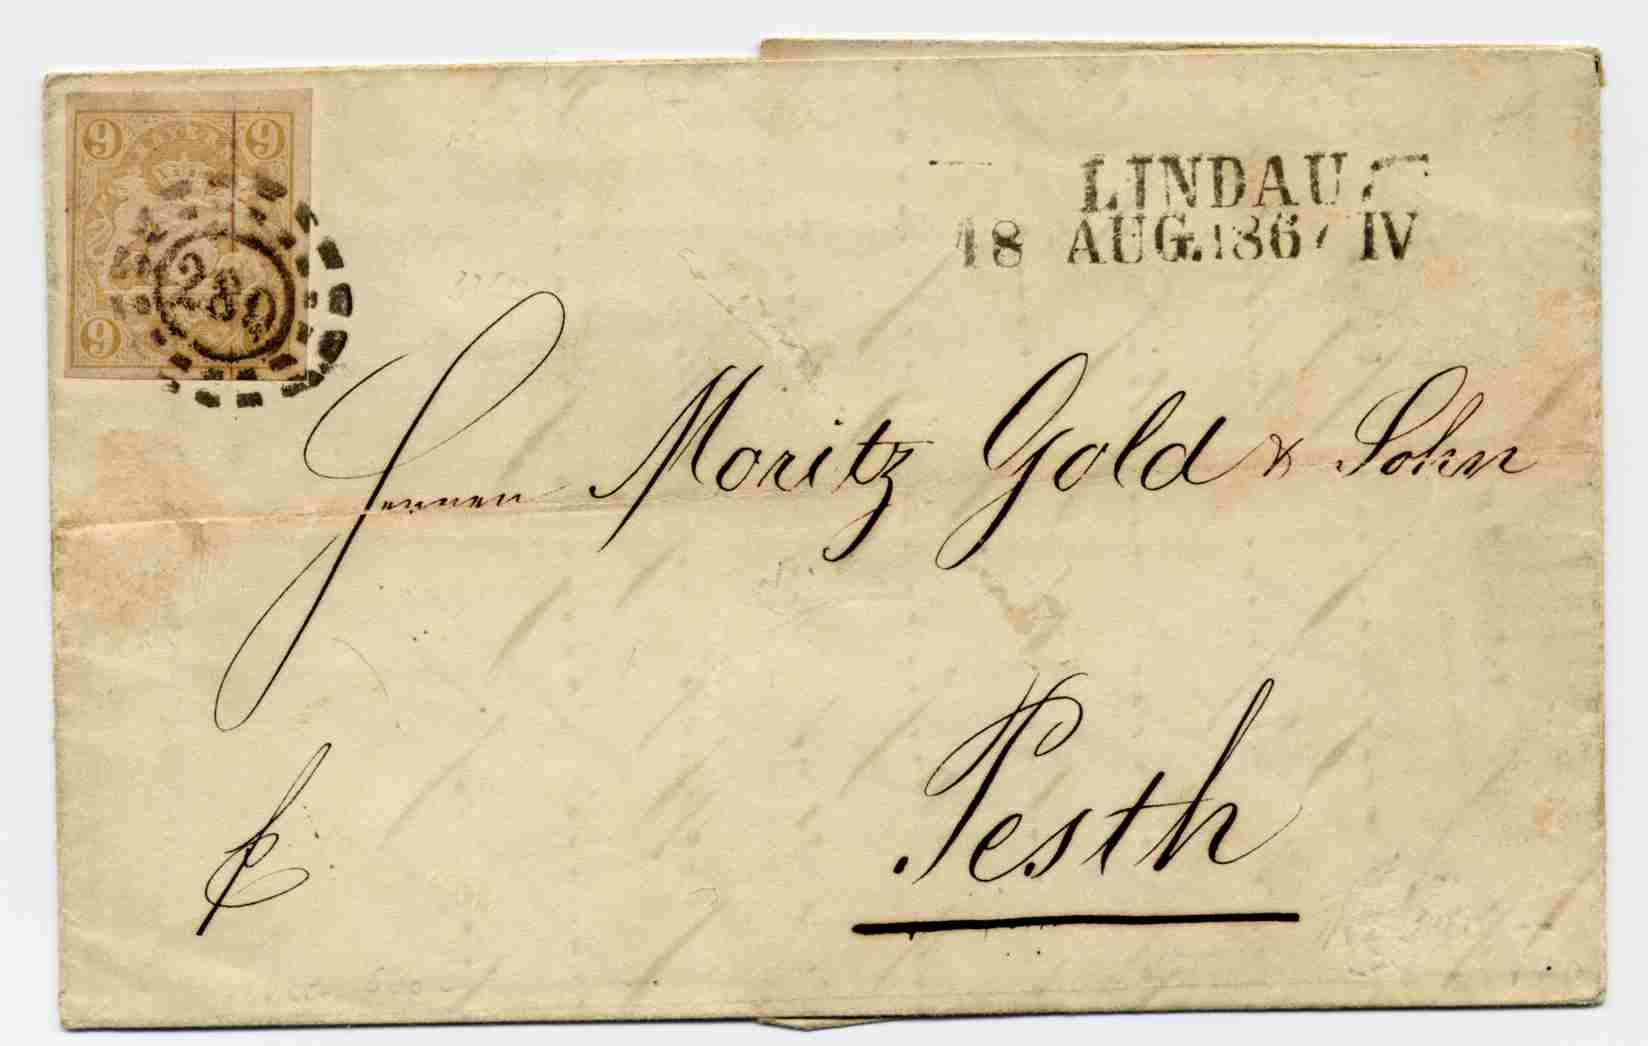 9 9
9
280
LINDAU
18 AUG. 1867 IV
Herren Moritz Gold & Sohn
Pesth